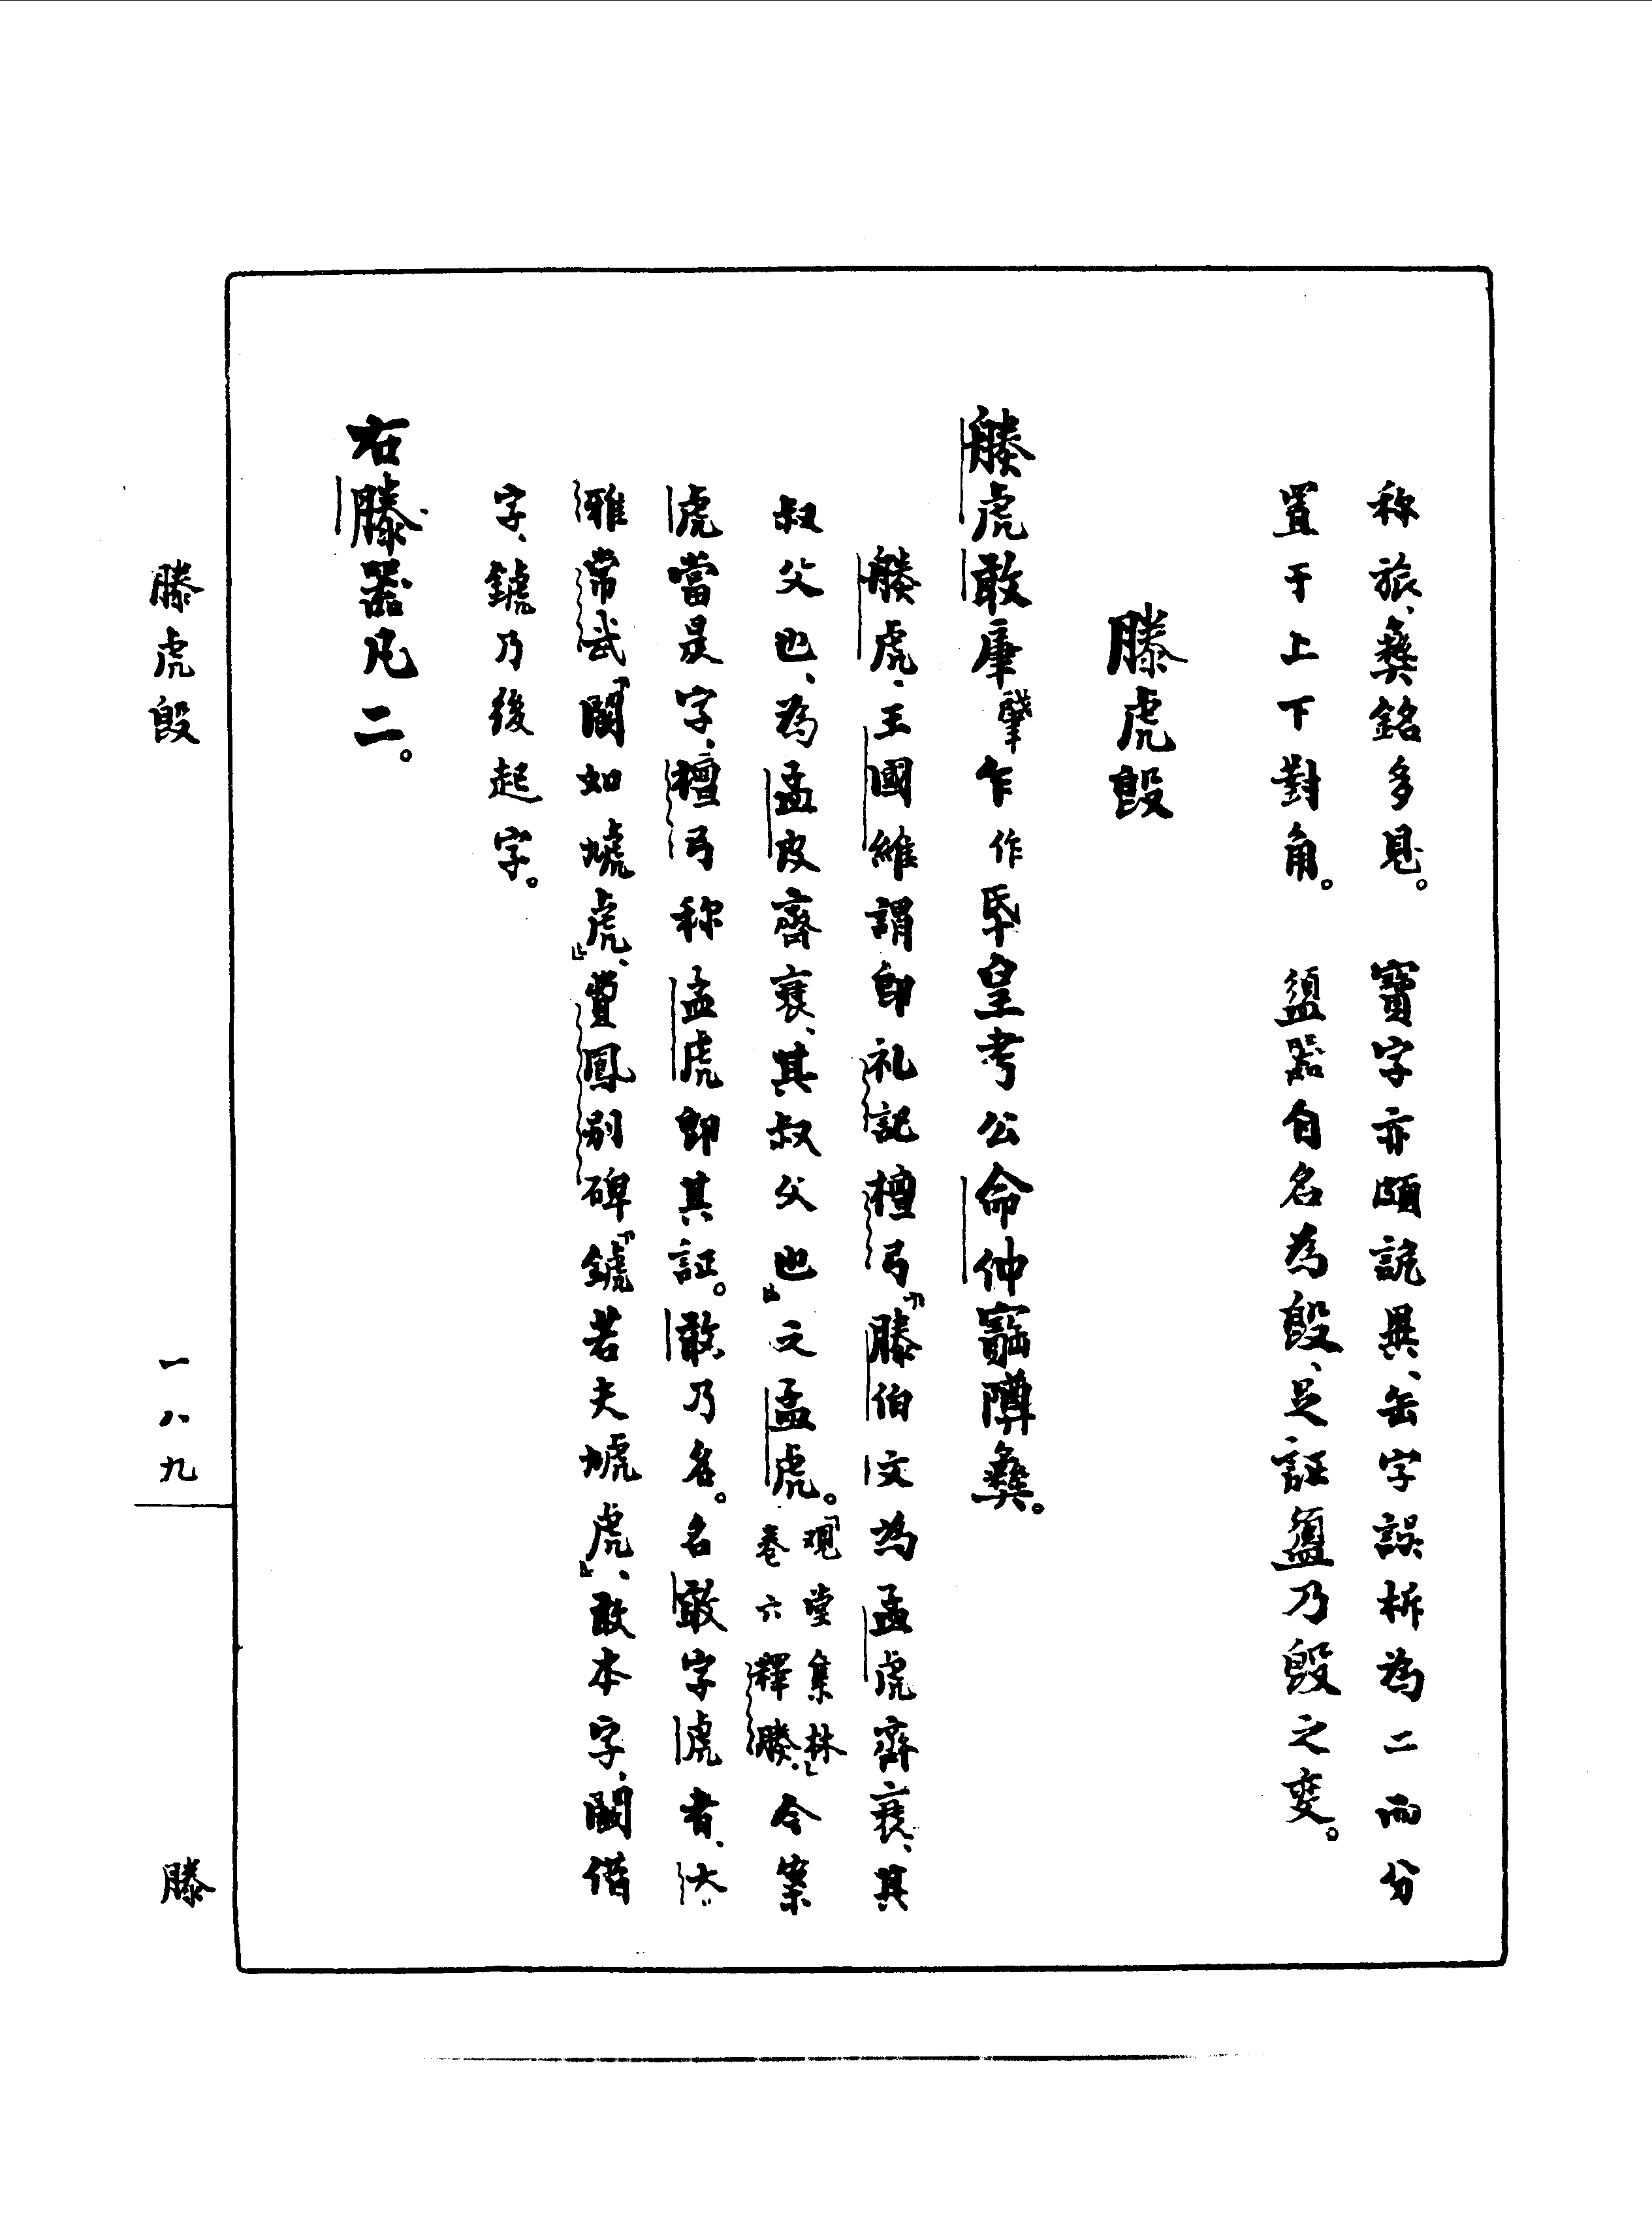 称旅、彝銘多見。寶字亦頗詭異、缶字誤析為二而分
置于上下對角。盨器自名為𣪘、足証盨乃𣪘之変。
滕虎𣪘
虎敢肇乍作氒皇考公命仲寶䵼彝。
虎、王國維謂即礼記檀弓「滕伯文為孟虎齊衰、其
叔父也、為孟皮齊衰、其叔父也」之孟虎。「观堂集林」卷六釋滕、今案
虎當是字、檀弓称孟虎即其証。敢乃名。名敢字虎者、大
雅常武「闞如虓虎」、費鳳别碑「鏬若夫虓虎」、敢本字、闞借
字、鏬乃後起字。
右滕器凡二。
滕虎𣪘
一八九
滕